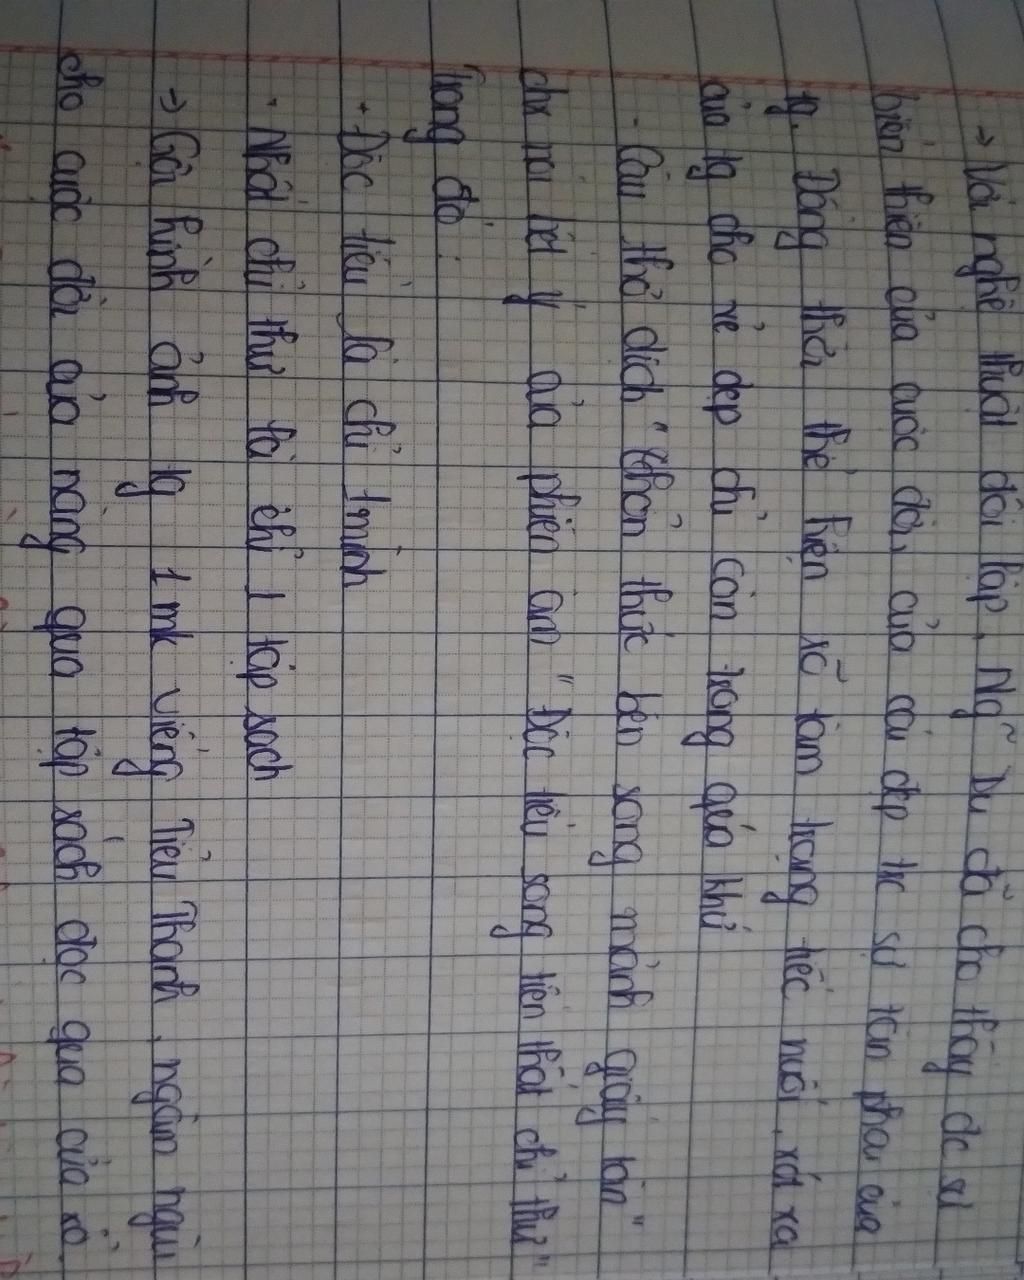 → Với nghệ thuật đối lập, Ng~ Du đã cho thấy đc sự
biến thiên của cuộc đời, của cái đẹp trc sự tàn phai của
tg. Đồng thời thể hiện rõ tâm trạng tiếc nuối, xót xa
của tg cho vẻ đẹp chỉ còn trong quá khứ
- Câu thơ dịch "Thổn thức bên song mảnh giấy tàn"
chx nói hết ý của phiên âm "Độc điếu song tiền nhất chỉ thư"
trong đó:
+ Độc điếu là chỉ 1 mình
+ Nhất chỉ thư là chỉ 1 tập sách
→ Gợi hình ảnh tg 1 mk viếng Tiểu Thanh, ngậm ngùi
cho cuộc đời của nàng qua tập sách đọc qua cửa sổ.